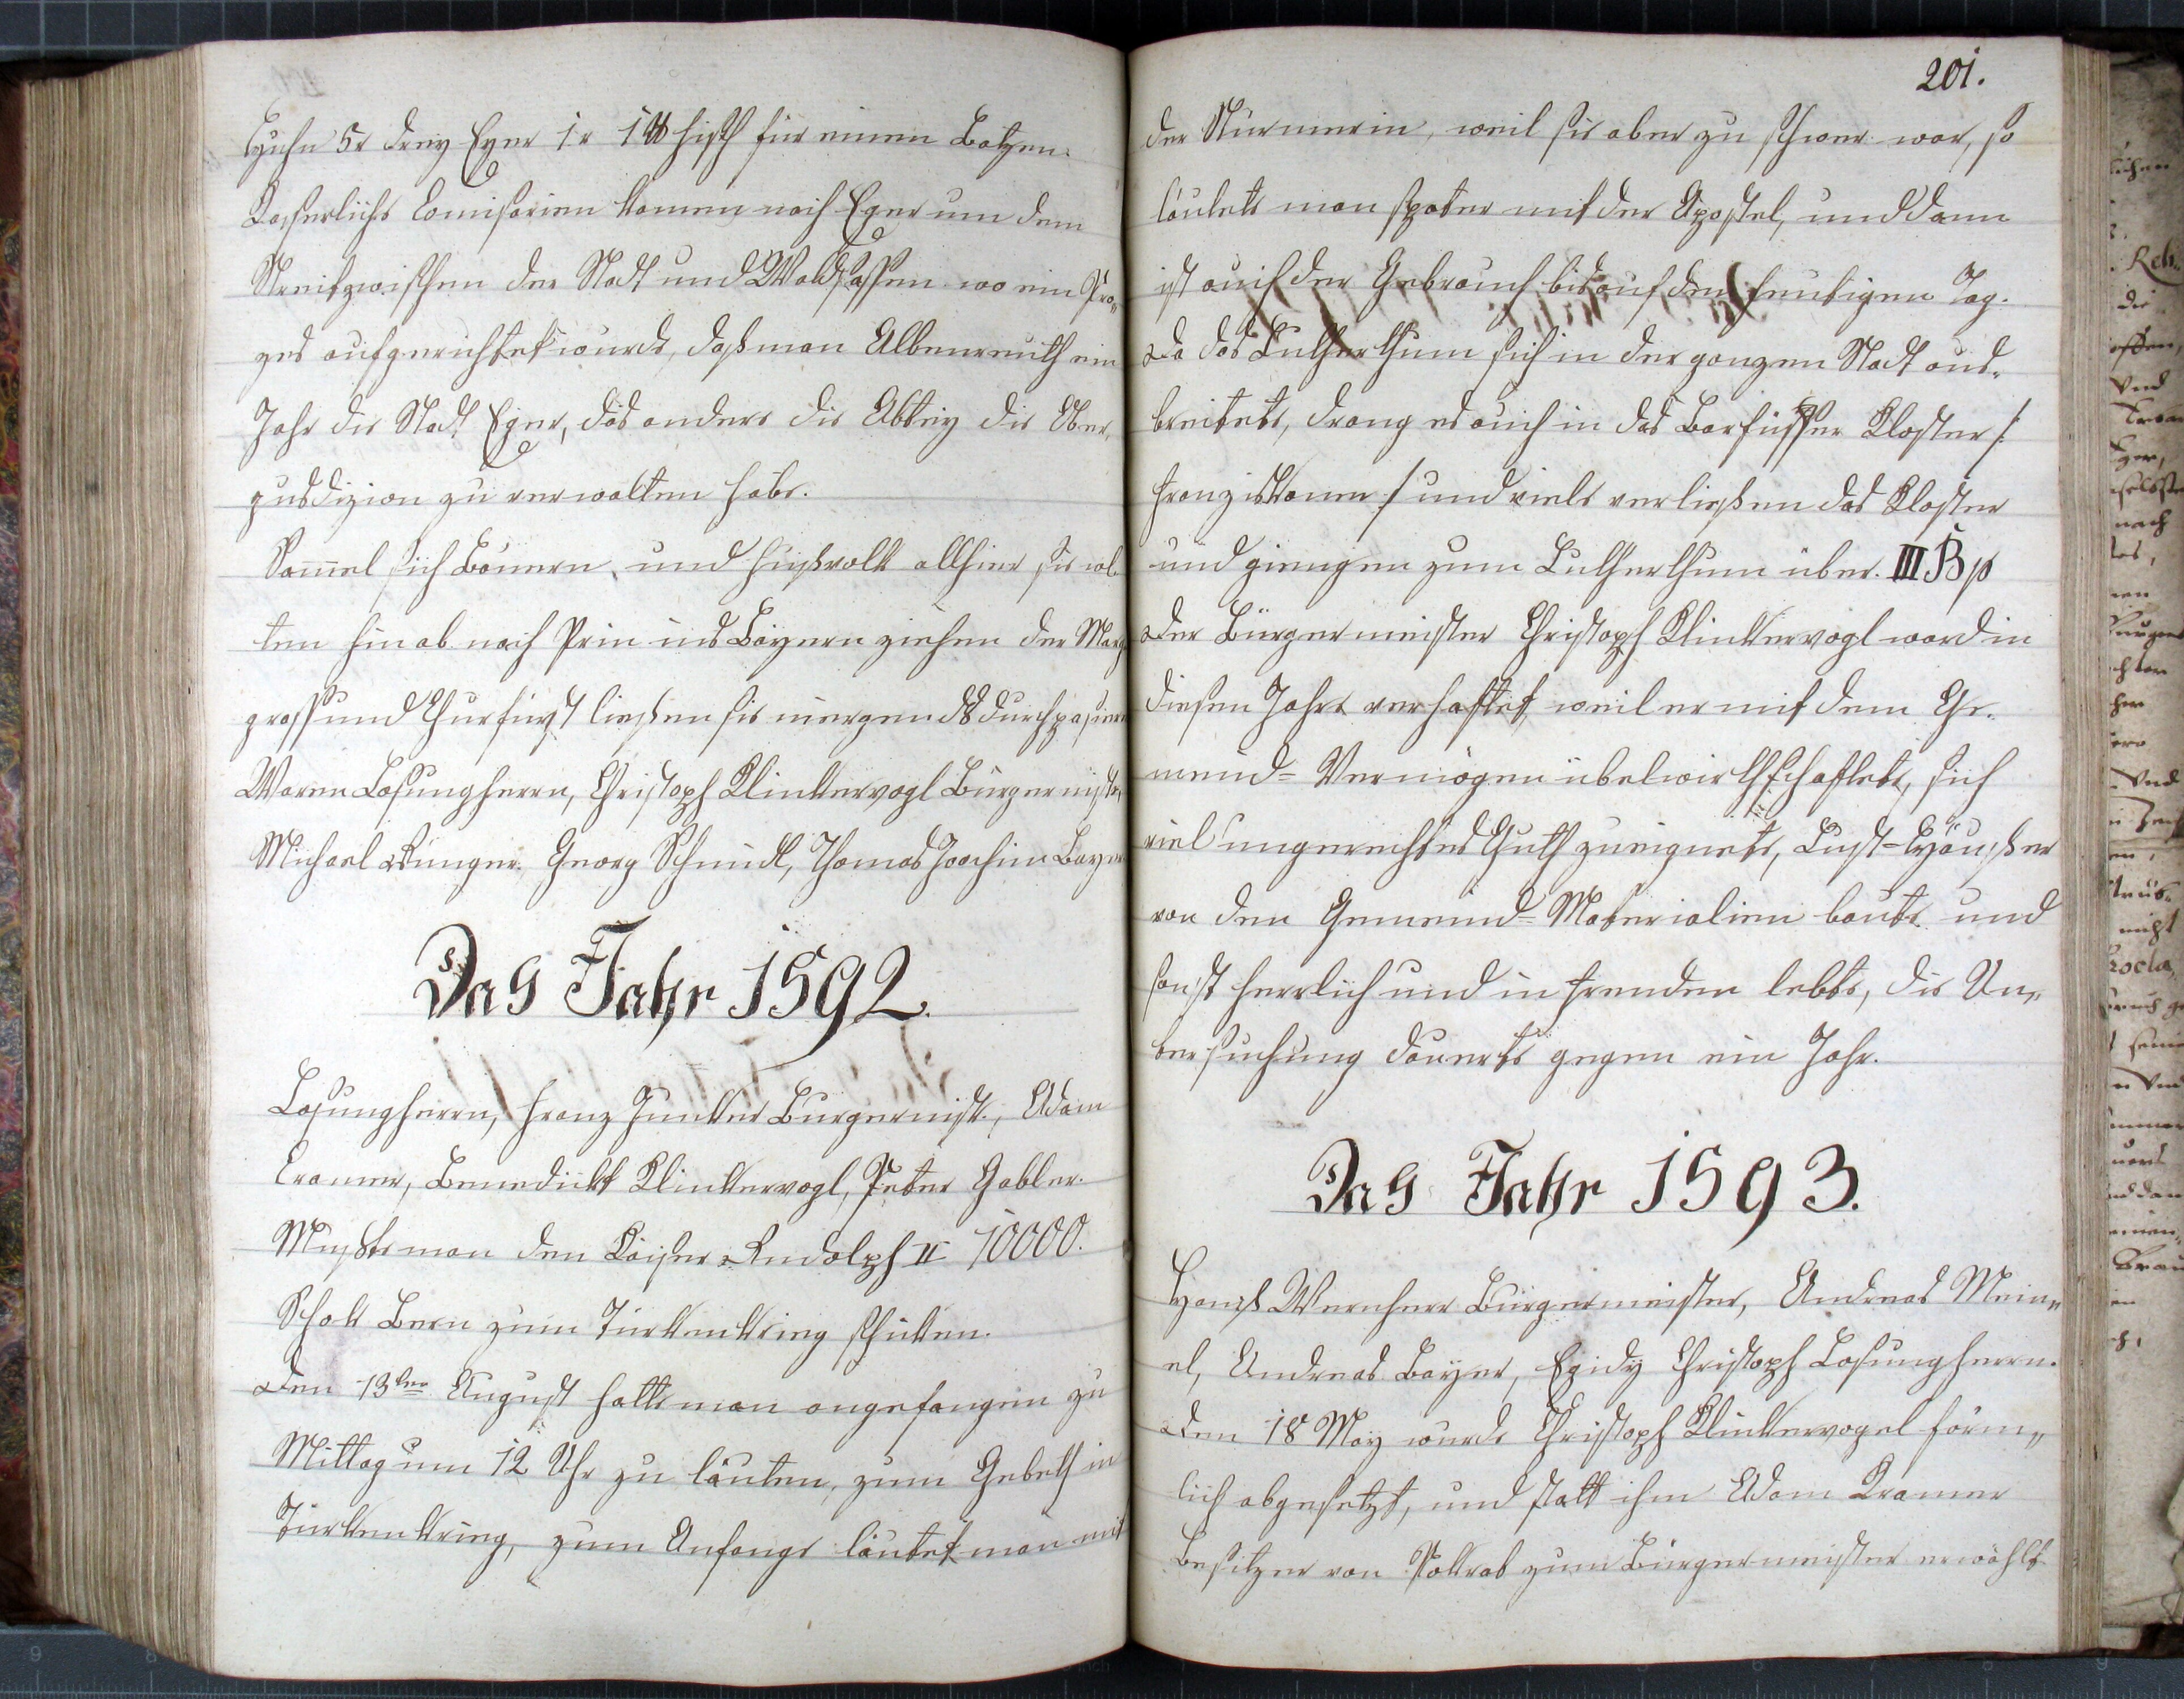 Huhn 5x drey Eyer 1x 1 ℔ Fisch für einen Batzen.
Kaiserliche Comisarien kamen nach Eger um dem
Streit zwischen der Stadt und Waldsassen wo ein Pro„
zes aufgerichtet wurde, daß man Albenreuth ein
Jahr die Stadt Eger, das andere die Abtey die Ober„
zusdizion zu verwalten habe.
Sam̄el sich Bauern und Fußvolk allhier sie wol
ten hinab nach Prin ins Bayern ziehen der Marg
graff und Churfürst ließen sie niergends durchpasieren
Waren Losungherrn, Christoph Klinkervogl Bürgermstr,
Michael Dünger, Georg Schmidl, Thomas Joachim Bayer
Das Jahr 1592.
Losungherrn, Franz Junker Bürgermist., Adam
Cramer, Benedickt Klinkervogl, Peter Gabler.
Mußte man den Kaiser Rudolph II 10000.
Schok Bern zum Türkenkrieg schicken.
Den 13ten August hatte man angefangen zu
Mittag um 12 Uhr zu läuten, zum Gebeth im
Türkenkrieg, zum Anfange läutet man mit
201.
der Stürmerin, weil sie aber zu schwer war, so
läutete man spater mit der Apostel, und dann
ist auch der Gebrauch bis auf den heutigen Tag.
Da das Lutherthum sich in der ganzen Stadt aus„
breitete, drang es auch in das Barfüsser Kloster /:
Franziskaner :/ und viele verließen das Kloster
und giengen zum Lutherthum über. III B p
Der Bürgermeister Christoph Klinkervogl ward in
diesen Jahre verhaftet, weil er mit dem Ge„
meind= Vermögen übelwirthschaftete, sich
viel ungerechtes Guth zueignete, Lust=Häußer
von den Gemeind= Materialien baute und
sonst herrlich und in Freuden lebte, die Un„
tersuchung dauerte gegen ein Jahr.
Das Jahr 1593.
Hanß Wernherr Bürgermeister, Andreas Mein„
el, Andreas Bayer, Egidy Christoph Losungherrn.
Den 18 May wurde Christoph Klinkervogel förm„
lich abgesetzt, und statt ihm Adam Kramer
Besitzer von Pokrat zum Bürgermeister erwählt